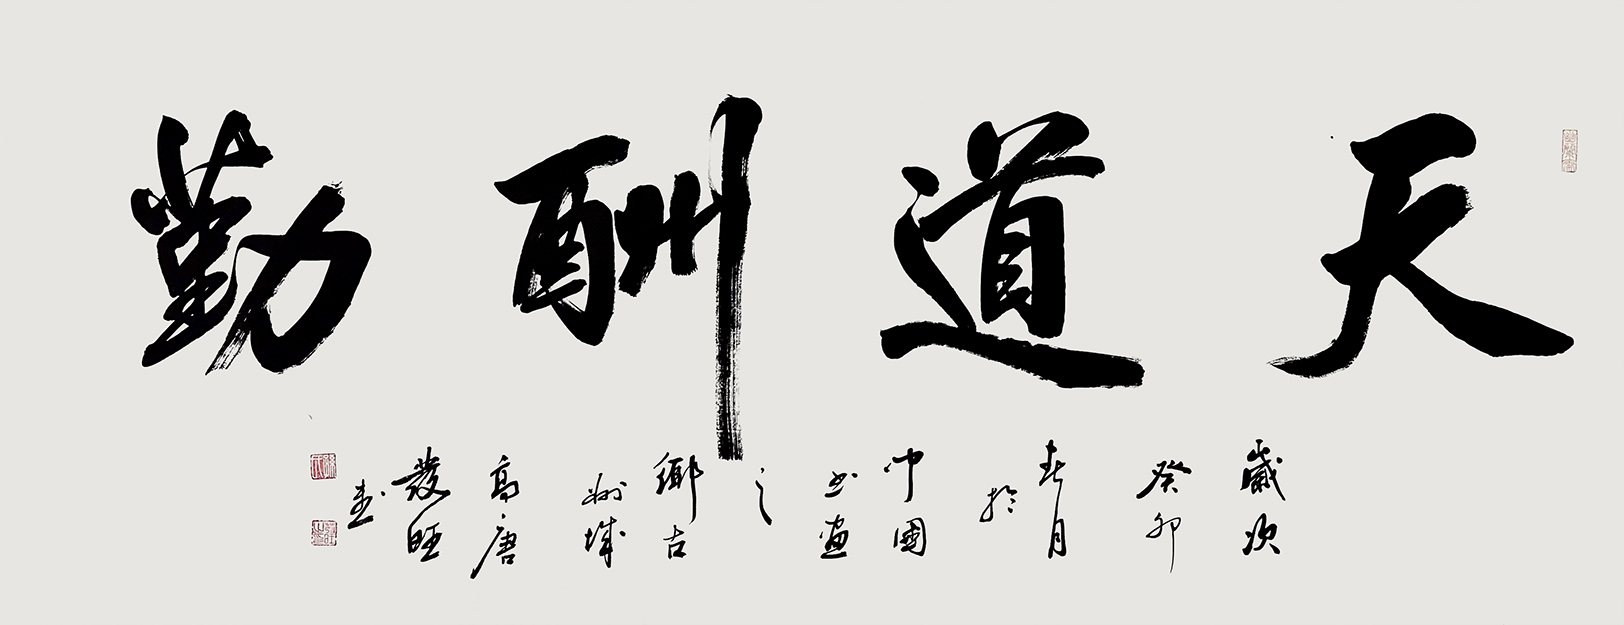 天道酬勤
歲次
癸卯
春月
於
中國
书畫
之
鄉古
州城
高唐
發旺
书